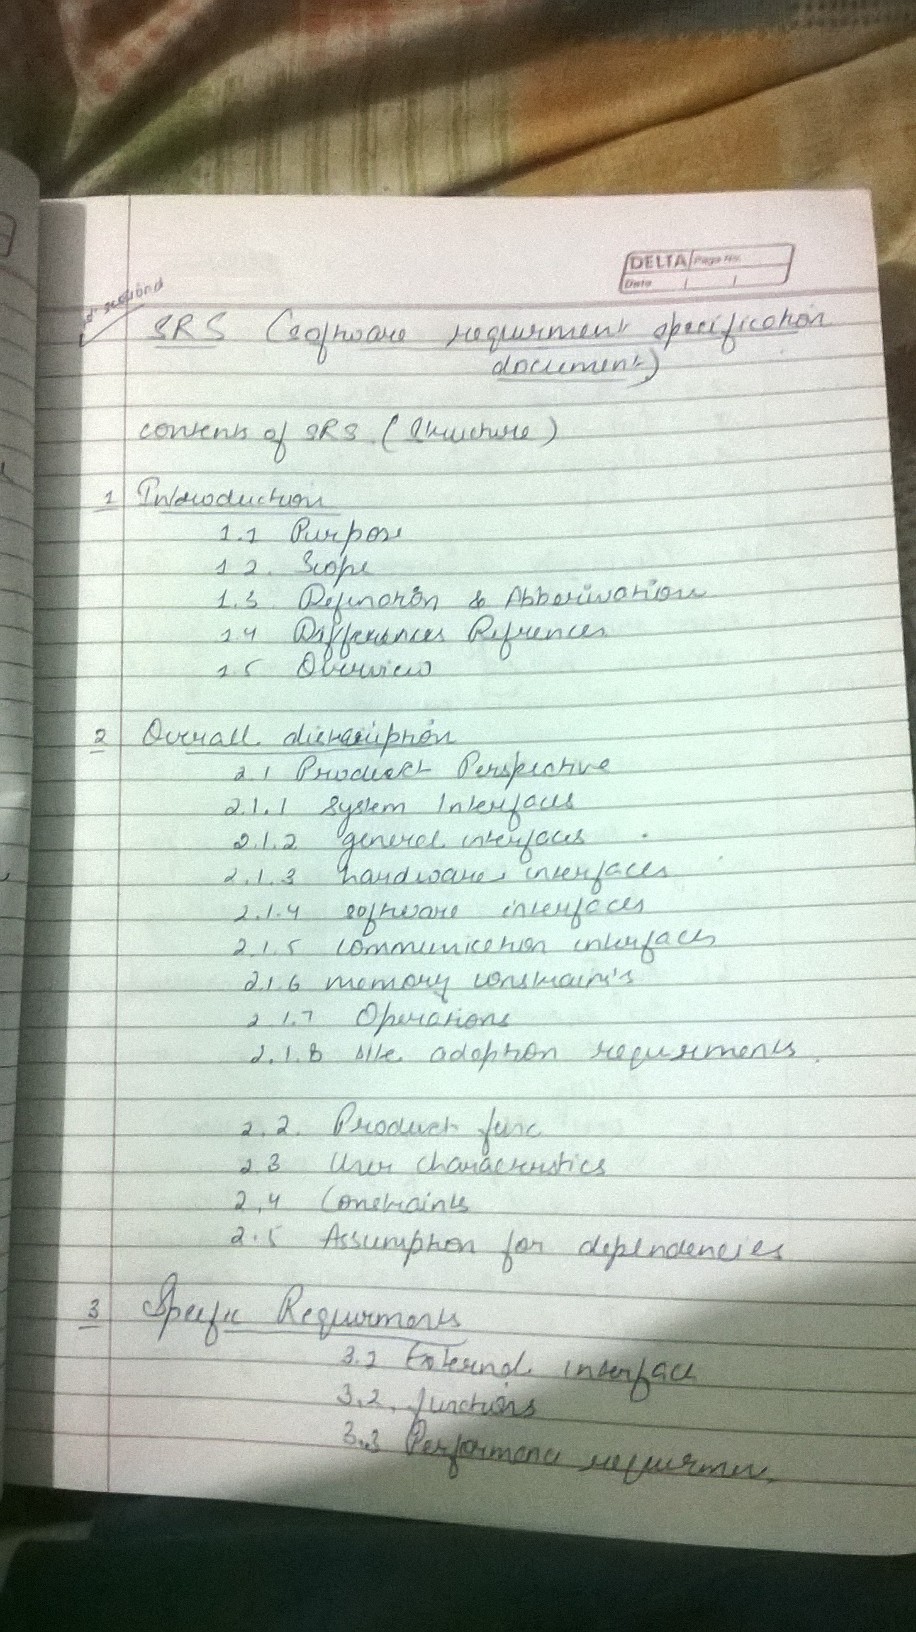 DELTA Page No.
Date
SRS (software requrment specification
document)
contents of SRS. (Structure)
1 Introduction
1.1 Purpose
1.2. Scope
1.3 Defination & Abberivations
1.4 Differences Refrences
1.5 Overview
2 Overall discription
2.1 Product Perspective
2.1.1 System Interfaces
2.1.2 general interfaces
2.1.3 hardware interfaces
2.1.4 software interfaces
2.1.5 communication interfaces
2.1.6 memory constraints
2.1.7 Operations
2.1.8 site adoption requirments.
2.2. Product func
2.3 User characteristics
2.4 Constraints
2.5 Assumption for dependencies
3 Specific Requrments
3.1 External interface
3.2. functions
3.3 Performance requrmen